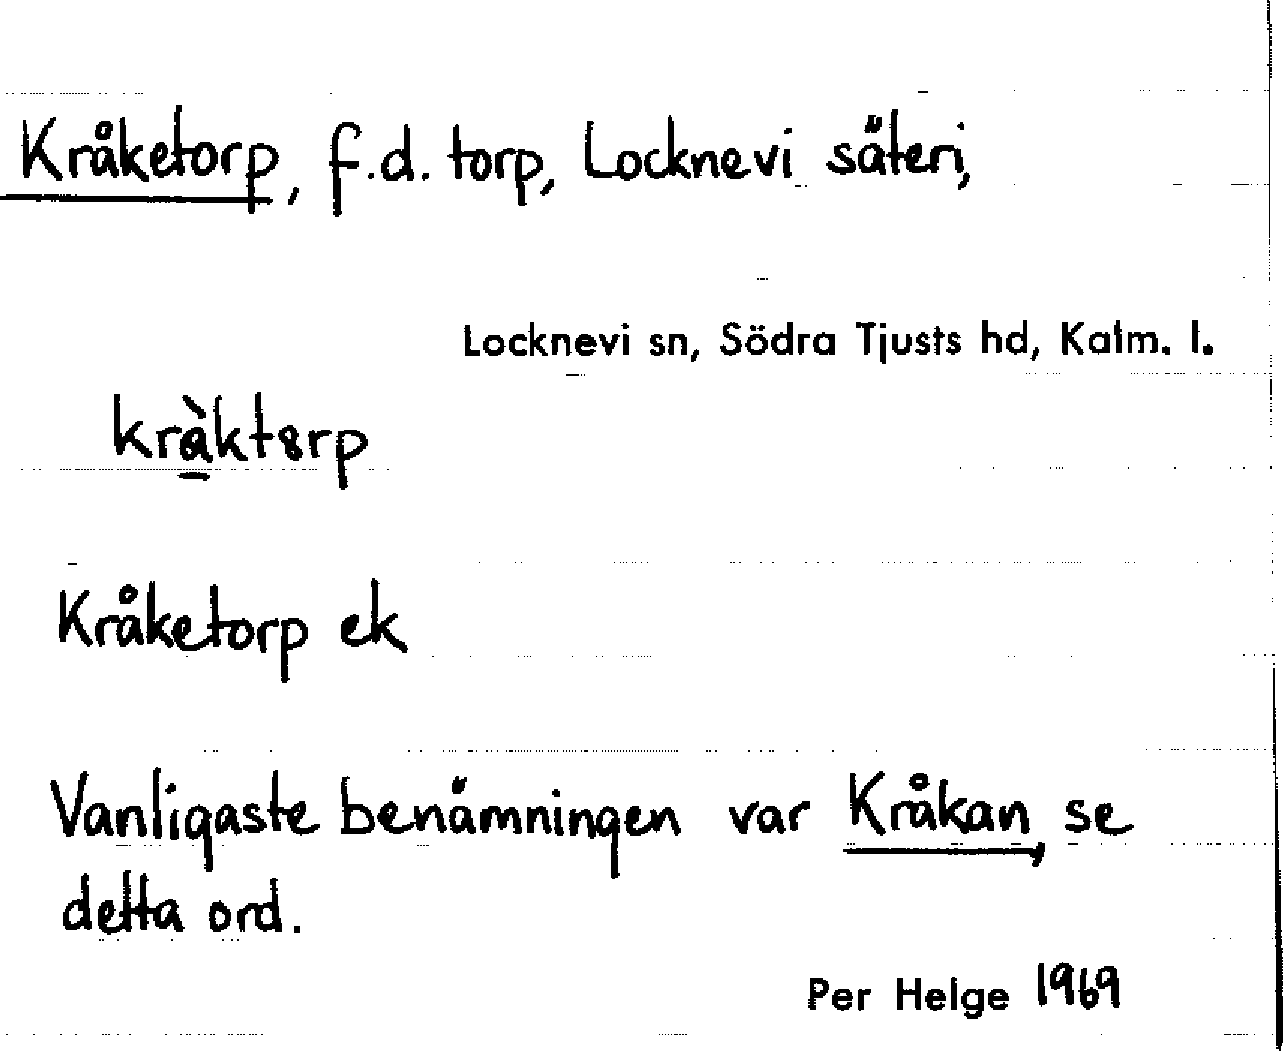 Kråketorp, f.d. torp, Locknevi säteri,
Locknevi sn, Södra Tjusts hd, Kalm. l.
Kråketorp ek
Vanligaste benämningen var Kråkan, se
detta ord.
Per Helge 1969